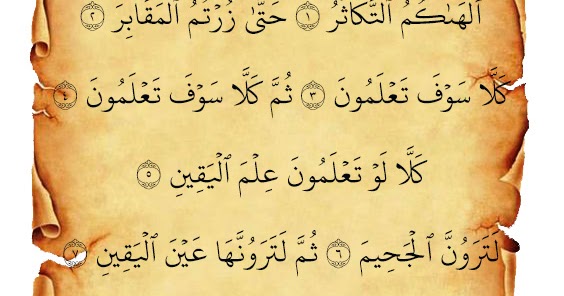 أَلۡهَىٰكُمُ ٱلتَّكَاثُرُ ١ حَتَّىٰ زُرۡتُمُ ٱلۡمَقَابِرَ ٢
كَلَّا سَوۡفَ تَعۡلَمُونَ ٣ ثُمَّ كَلَّا سَوۡفَ تَعۡلَمُونَ ٤
كَلَّا لَوۡ تَعۡلَمُونَ عِلۡمَ ٱلۡيَقِينِ ٥
لَتَرَوُنَّ ٱلۡجَحِيمَ ٦ ثُمَّ لَتَرَوُنَّهَا عَيۡنَ ٱلۡيَقِينِ ٧